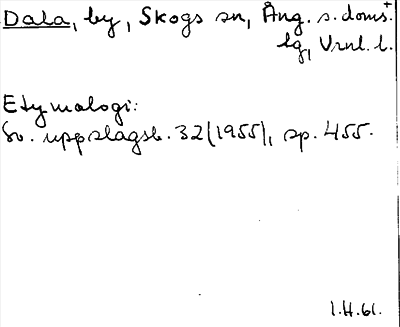 Dala, by, Skogs sn, Ång. s. doms.+
lg, Vrnl. l.
Etymologi:
Sv. uppslagsb. 32 (1955), sp. 455.
1.H.61.